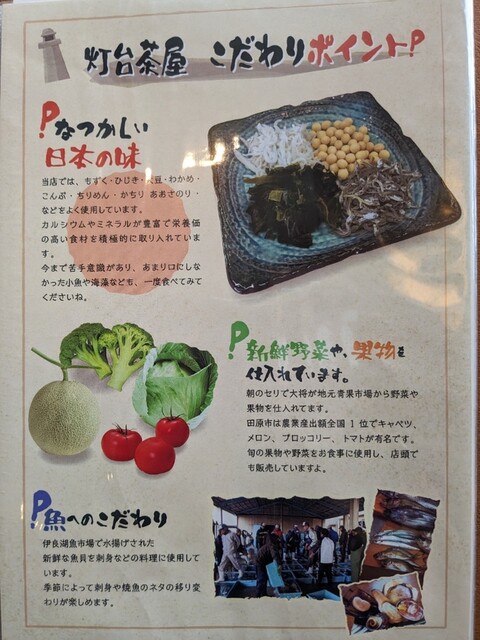 灯台茶屋 こだわりポイント!
Pなつかしい
日本の味
当店では、もずく・ひじき・豆・わかめ・
こんぶ・ちりめん・かちり あおさのり・
などをよく使用しています。
カルシウムやミネラルが豊富で栄養価
の高い食材を積極的に取り入れていま
す。
今まで苦手意識があり、あまり口にしな
かった小魚や海藻なども、一度食べてみて
くださいね。
P新鮮野菜や、果物を
仕入れています。
朝のセリで大将が地元青果市場から野菜や
果物を仕入れてます。
田原市は農業産出額全国1位でキャベツ、
メロン、ブロッコリー、トマトが有名です。
旬の果物や野菜をお食事に使用し、店頭
でも販売していますよ。
P魚へのこだわり
伊良湖魚市場で水揚げされた
新鮮な魚貝を刺身などの料理に使用して
います。
季節によって刺身や焼魚のネタの移り変
わりが楽しめます。